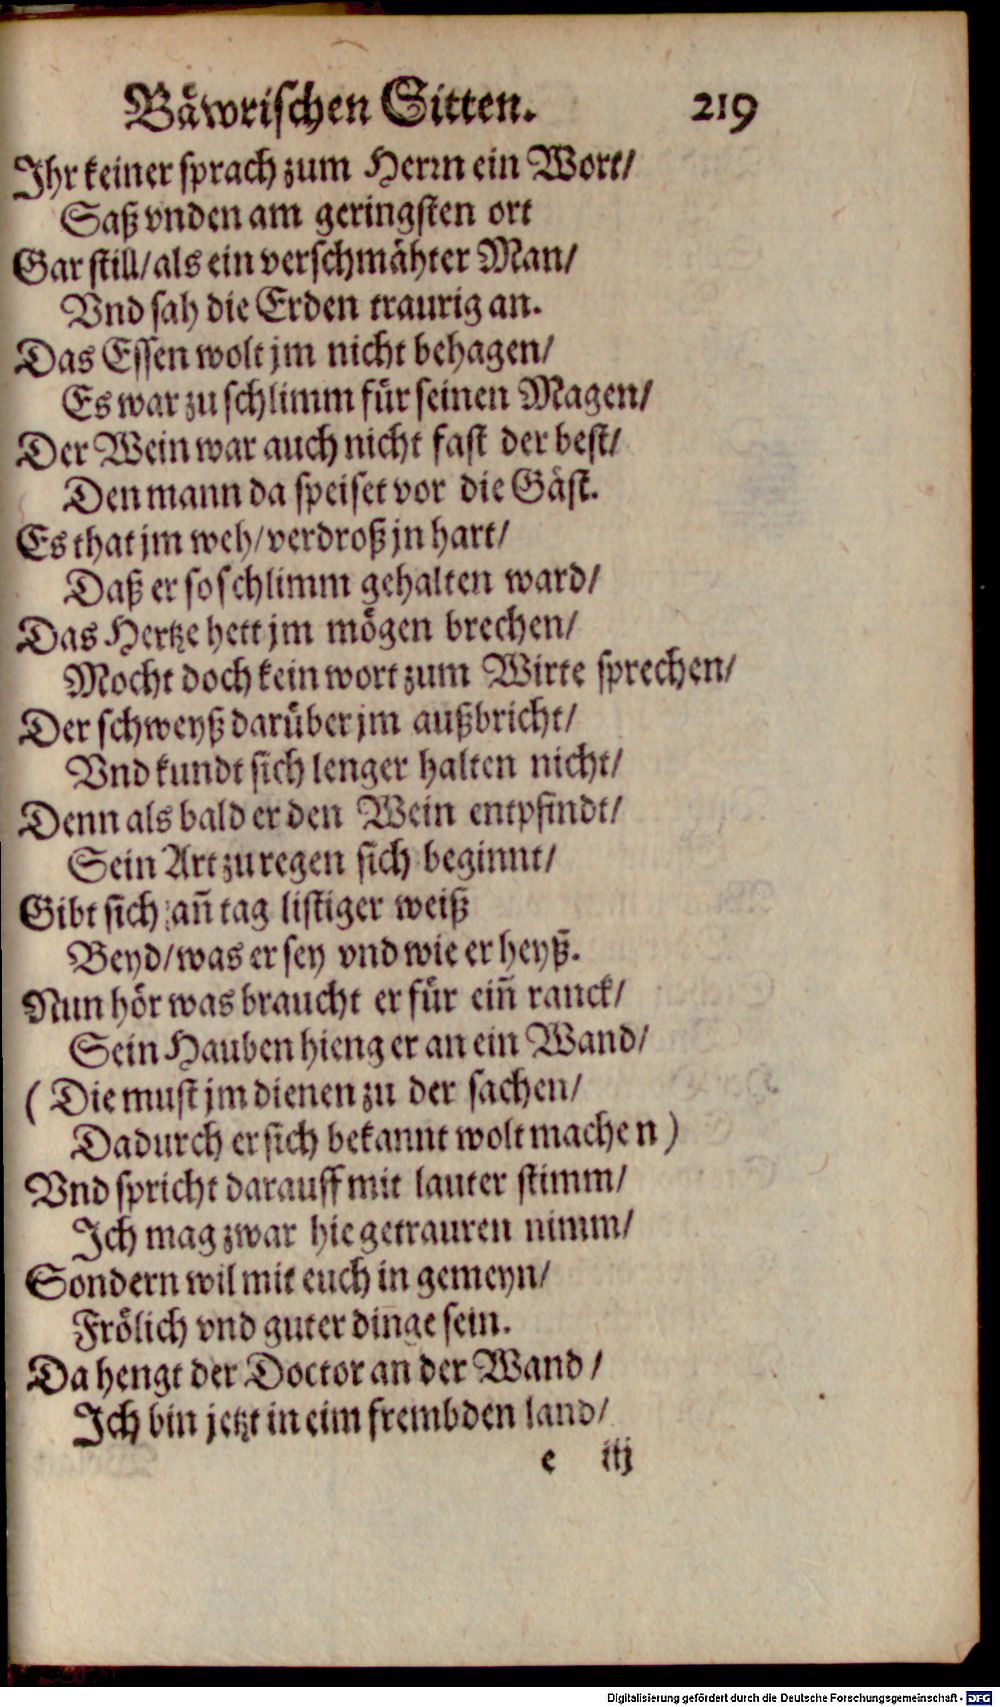 Bäwrischen Sitten. 219
Ihr keiner sprach zum Herrn ein Wort/
Saß vnden am geringsten ort
Gar still/als ein verschmähter Man/
Vnd sah die Erden traurig an.
Das Essen wolt jm nicht behagen/
Es war zu schlimm für seinen Magen/
Der Wein war auch nicht fast der best/
Den mann da speiset vor die Gäst.
Es that jm weh/verdroß jn hart/
Daß er so schlimm gehalten ward/
Das Hertze hett jm mögen brechen/
Mocht doch kein wort zum Wirte sprechen/
Der schweyß darüber jm außbricht/
Vnd kundt sich lenger halten nicht/
Denn als bald er den Wein entpfindt/
Sein Art zu regen sich beginnt/
Gibt sich an̄ tag listiger weiß
Beyd/was er sey vnd wie er heyß.
Nun hör was braucht er für ein̄ ranck/
Sein Hauben hieng er an ein Wand/
(Die must jm dienen zu der sachen/
Dadurch er sich bekannt wolt machen)
Vnd spricht darauff mit lauter stimm/
Ich mag zwar hie getrauren nimm/
Sondern wil mit euch in gemeyn/
Frölich vnd guter din̄ge sein.
Da hengt der Doctor an der Wand/
Ich bin jetzt in eim frembden land/
e iij
Digitalisierung gefördert durch die Deutsche Forschungsgemeinschaft - DFG